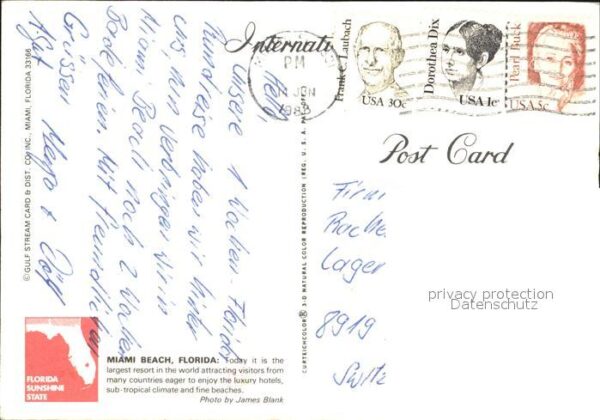 Internati
PM
JUN
Frank C. Laubach
USA 30c
Dorothea Dix
USA 1c
Pearl Buck
USA 5c
Post Card
Hello,
unsere 4 Wochen-Florida
Rundreise haben wir hinter
uns. Nun verbringen wir in
Miami Beach noch 2 Wochen
Badeferien. Mit freundlichen
Grüssen
Firm
Lager
8919
privacy protection
Datenschutz
©GULF STREAM CARD & DIST. CO. INC., MIAMI, FLORIDA 33166
CURTEICHCOLOR® 3-D NATURAL COLOR REPRODUCTION (REG. U. S. A. PAT. OFF.
FLORIDA
SUNSHINE
STATE
MIAMI BEACH, FLORIDA: Today it is the
largest resort in the world attracting visitors from
many countries eager to enjoy the luxury hotels,
sub-tropical climate and fine beaches.
Photo by James Blank